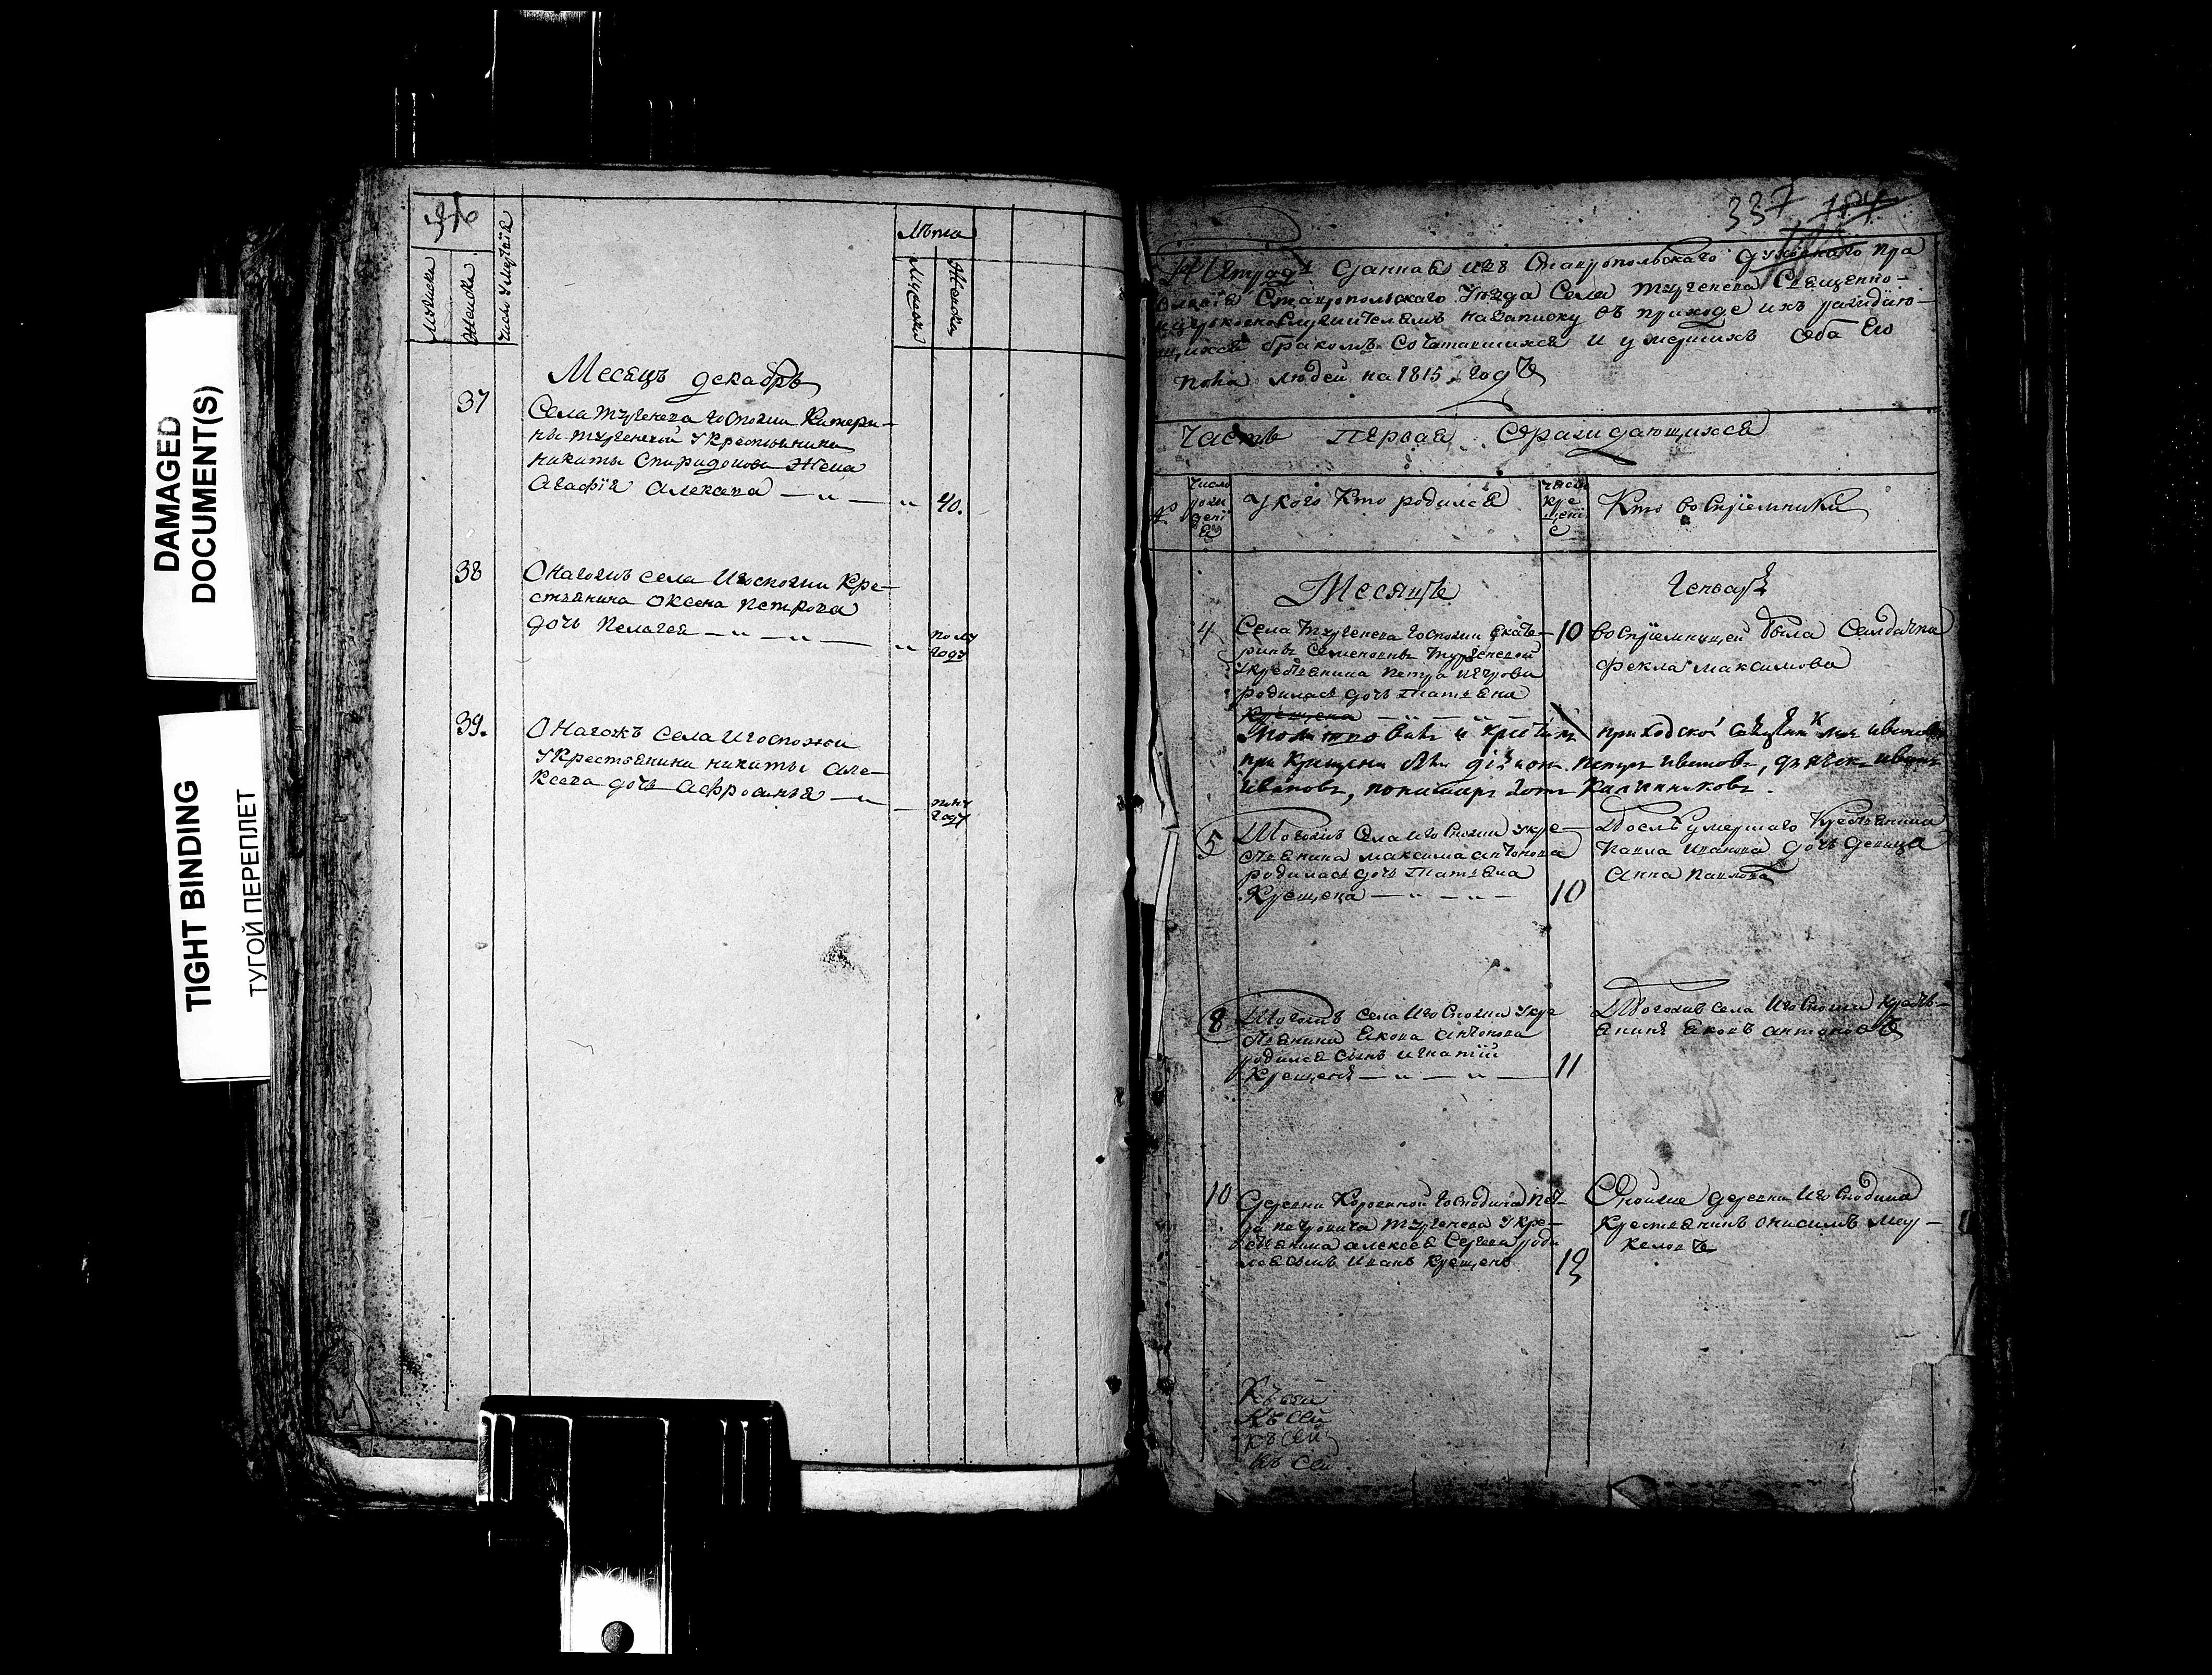 DAMAGED
DOCUMENT(S)
TIGHT BINDING
ТУГОЙ ПЕРЕПЛЕТ
Мужска
Женска
Число умертвiя
Лѣта
Мужска
Женска
Месяцъ декабрь
37
Села тургенева госпожи Катери-
ны тургеневой у крестьянина
никиты Спиридонова Жена
Агафiя Алексева
40.
38
Онагожъ села И госпожи Кре-
стьянина Оксена Петрова
дочь Пелагея
полу
году
39.
Онагожъ села И госпожи
у Крестьянина никиты Але-
ксеева дочь Афросинья
полу
году
337 184
Тетрадь данная изъ Ставропольскаго духовнаго пра
вления Ставропольскаго уезда Села тургенева Священно-
церковнослужителемъ на записку въ приходе ихъ раждаю-
щихся бракомъ Сочетавшихся и умершихъ оба его
пола людей на 1815 годъ
Часть Первая О раждающихся
№
Число рождения
У кого Кто родился
Число крещения
Кто воспрiемники
Месяцъ Генварь
4
Села тургенева госпожи Екате-
рины Семеновны тургеневой
у крестьянина Петра Петрова
родилась дочь татьяна
крещена
10
воспрiемницей была Салдатка
Фекла максимова
молитвовалъ и крестилъ приходской священникъ Иванов
при крещении были дiаконъ Петръ Ивановъ, дьячек Иванъ
Ивановъ, пономарь Калинниковъ.
5
Тогожъ села И госпожи у кре-
стьянина максима антонова
родилась дочь татьяна
Крещена
10
Тоежъ умершаго Крестьянина
Павла Иванова дочь девица
Анна Павлова
8
Тогожъ села И госпожи у кре
стьянина Якова антонова
родился сынъ игнатiй
Крещенъ
11
Тогожъ села И госпожи крестья-
янинъ Яковъ антоновъ
10
Деревни Коровиной господина Пет-
ра петровича тургенева у кре-
стьянина алексея Сергеева роди
лся сынъ Иванъ Крещенъ
12
Оной же деревни И господина
Крестьянинъ онисимъ Мер-
келовъ
Къ сей
Къ сей
Къ сей
Къ сей